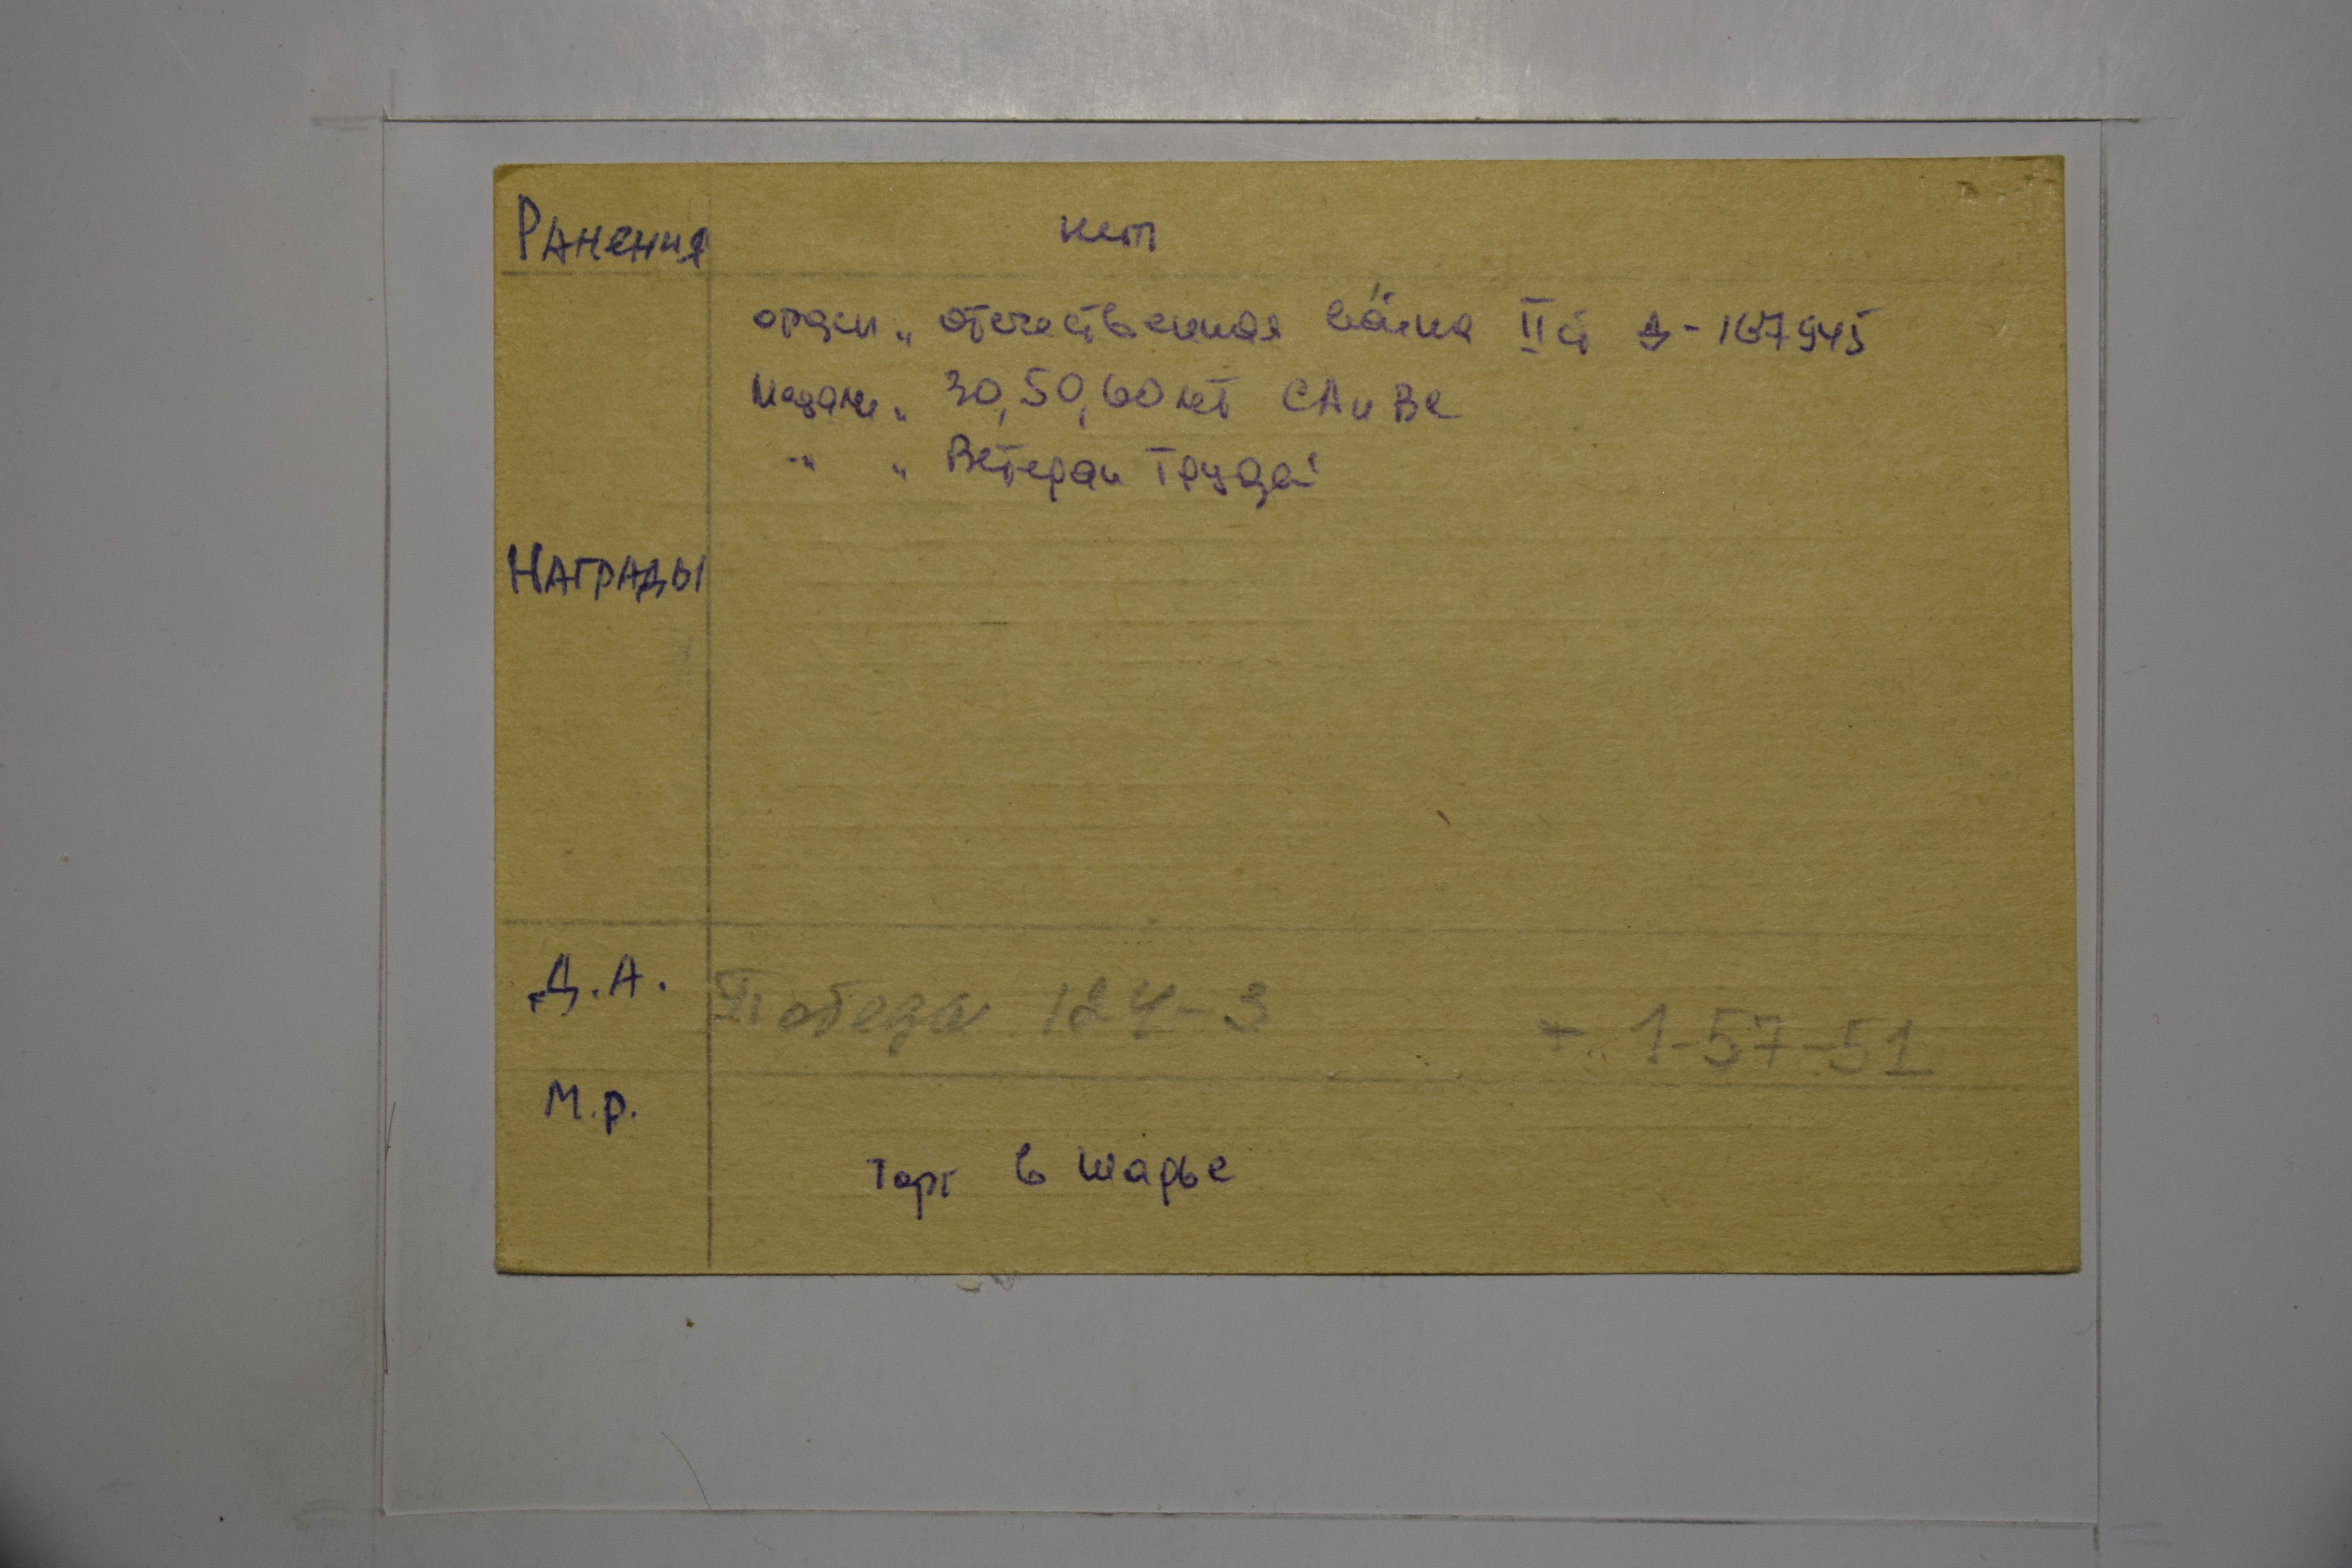 Ранения нет
орден „ отечественная война II ст Д-167945
Медали „ 30, 50, 60 лет СА и ВС
-„ „ Ветеран Труда"
Награды
Д.А. Победа 124-3 т. 1-57-51
М.р.
Торг в Шарье